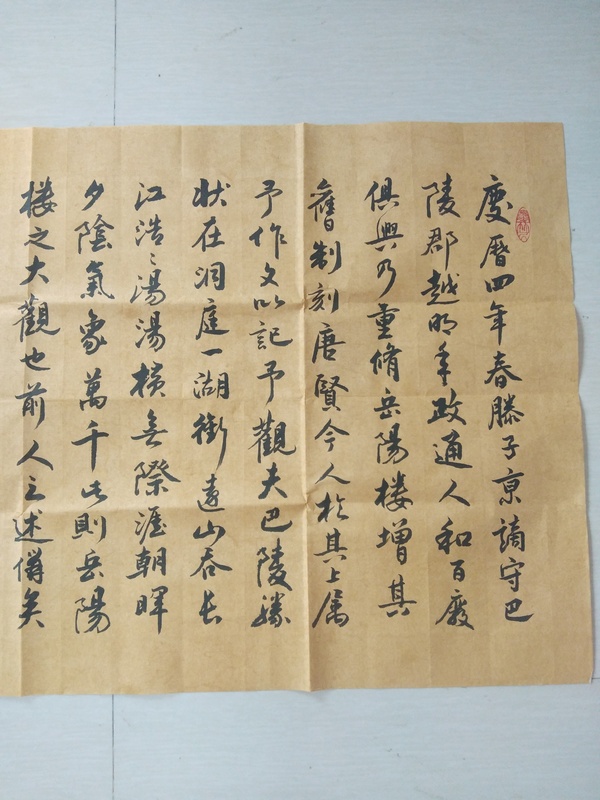 慶曆四年春滕子京謫守巴
陵郡越明年政通人和百廢
俱興乃重脩岳陽楼增其
舊制刻唐賢今人於其上属
予作文以記予觀夫巴陵勝
狀在洞庭一湖銜遠山吞長
江浩〻湯湯橫無際涯朝暉
夕陰氣象萬千此則岳陽
楼之大觀也前人之述備矣